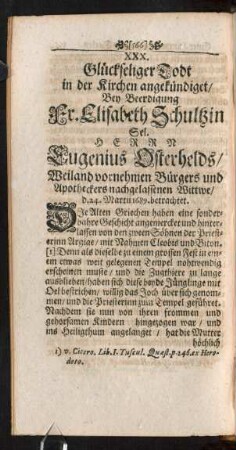 (166)
XXX.
Glückseliger Todt
in der Kirchen angekündiget/
Bey Beerdigung
Fr. Elisabeth Schultzin
Sel.
HERRN
Eugenius Osterhelds/
Weiland vornehmen Bürgers und
Apotheckers nachgelassenen Wittwe/
d. 24. Martii 1689. betrachtet.
DJe Alten Griechen haben eine sonder-
bahre Geschicht angemercket und hinter-
lassen von den zween Söhnen der Prieste-
rinn Argiae/ mit Nahmen Cleobis und Biton.
(1) Denn als dieselbe zu einem grossen Fest in ei-
nem etwas weit gelegenen Tempel nohtwendig
erscheinen muste/ und die Zugthiere zu lange
ausblieben/ haben sich diese beyde Jünglinge mit
Oel bestrichen/ willig das Joch über sich genom-
men/ und die Priesterinn zum Tempel geführet.
Nachdem sie nun von ihren frommen und
gehorsamen Kindern hingezogen war/ und
ins Heiligthum angelanget/ hat die Mutter
höchlich
1) v. Cicero. Lib. I. Tuscul. Quæst. p. 248. ex Hero-
doto.